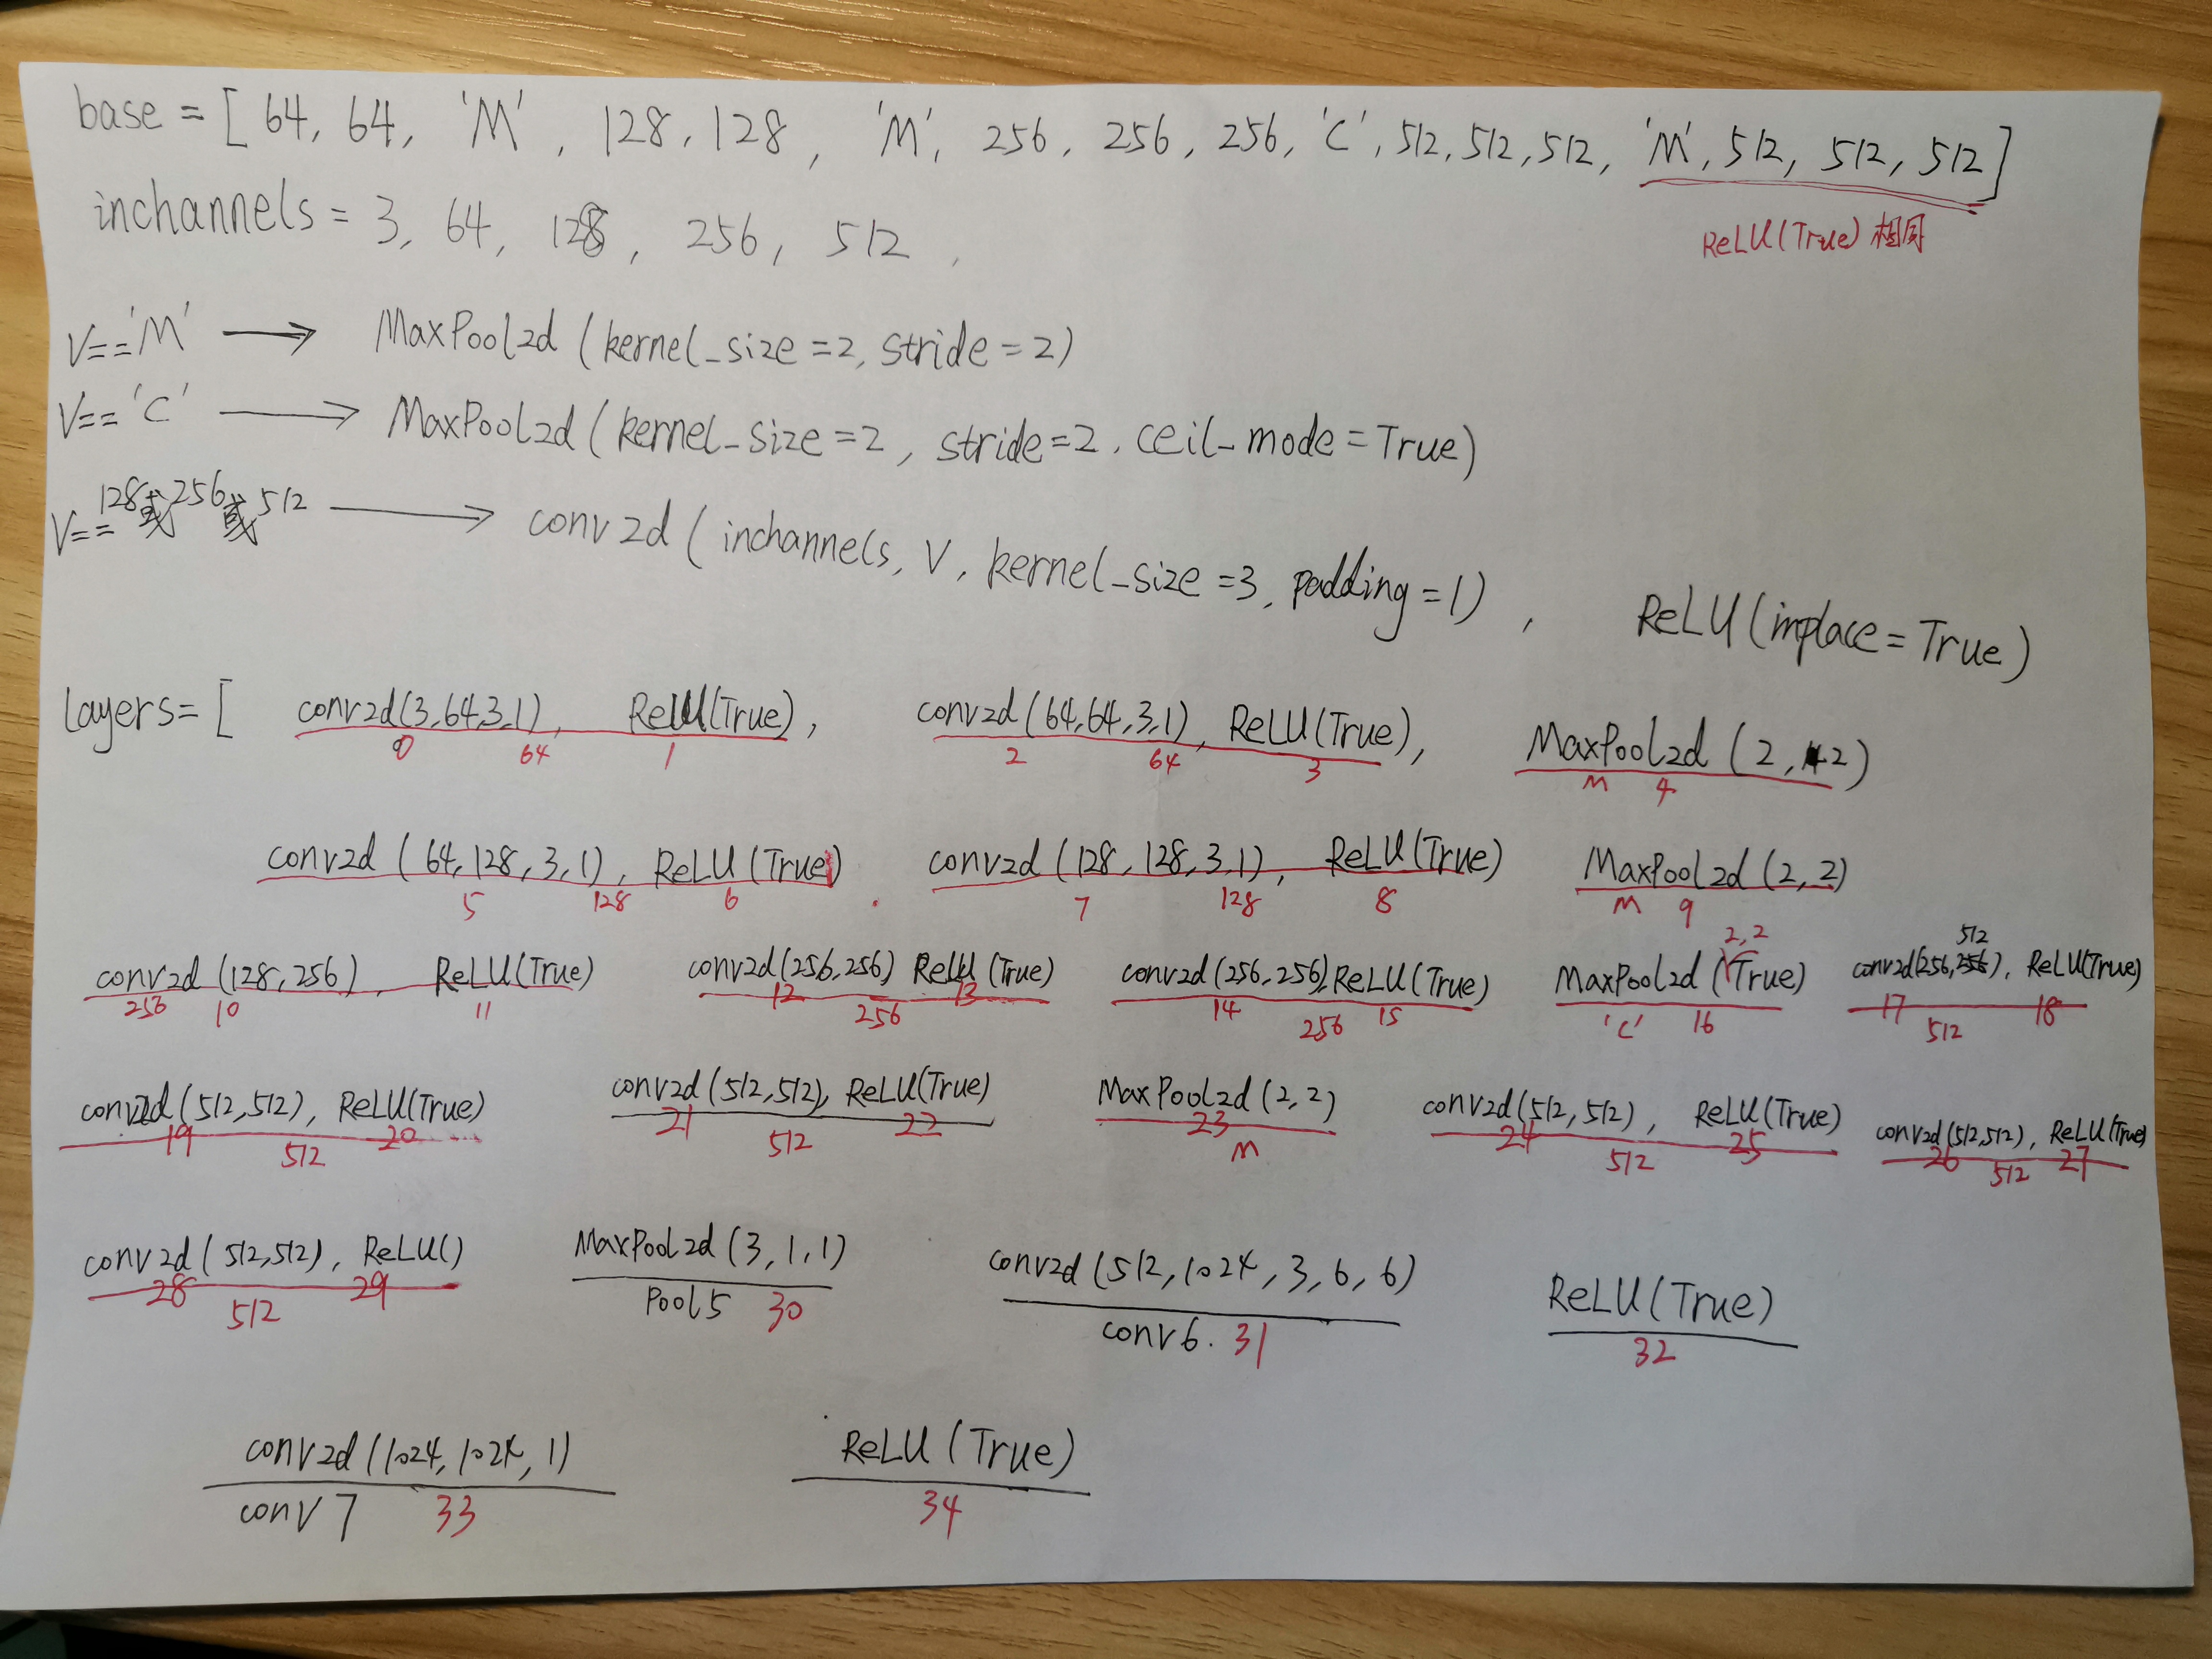 base = [ 64, 64, 'M', 128, 128, 'M', 256, 256, 256, 'C', 512, 512, 512, 'M', 512, 512, 512]
ReLU(True) 相同
inchannels = 3, 64, 128, 256, 512,
V=='M' → MaxPool2d (kernel_size=2, stride=2)
V=='C' → MaxPool2d (kernel_size=2, stride=2, ceil_mode=True)
V==128或256或512 → conv2d (inchannels, V, kernel_size=3, padding=1), ReLU(inplace=True)
layers= [ conv2d(3,64,3,1), ReLU(True), conv2d(64,64,3,1), ReLU(True), MaxPool2d (2, 2)
0 64 1 2 64 3 M 4
conv2d (64,128,3,1), ReLU(True) conv2d (128,128,3,1), ReLU(True) MaxPool2d (2,2)
5 128 6 7 128 8 M 9
2,2 512
conv2d (128,256), ReLU(True) conv2d(256,256) ReLU(True) conv2d(256,256),ReLU(True) MaxPool2d (True) conv2d(256,256), ReLU(True)
256 10 11 12 256 13 14 256 15 'C' 16 17 512 18
conv2d(512,512), ReLU(True) conv2d(512,512), ReLU(True) MaxPool2d (2,2) conv2d(512,512), ReLU(True) conv2d(512,512), ReLU(True)
19 512 20 21 512 22 23 M 24 512 25 26 512 27
conv2d(512,512), ReLU() MaxPool2d (3,1,1) conv2d(512,1024,3,6,6) ReLU(True)
28 512 29 Pool5 30 conv6. 31 32
conv2d(1024,1024,1) ReLU(True)
conv7 33 34